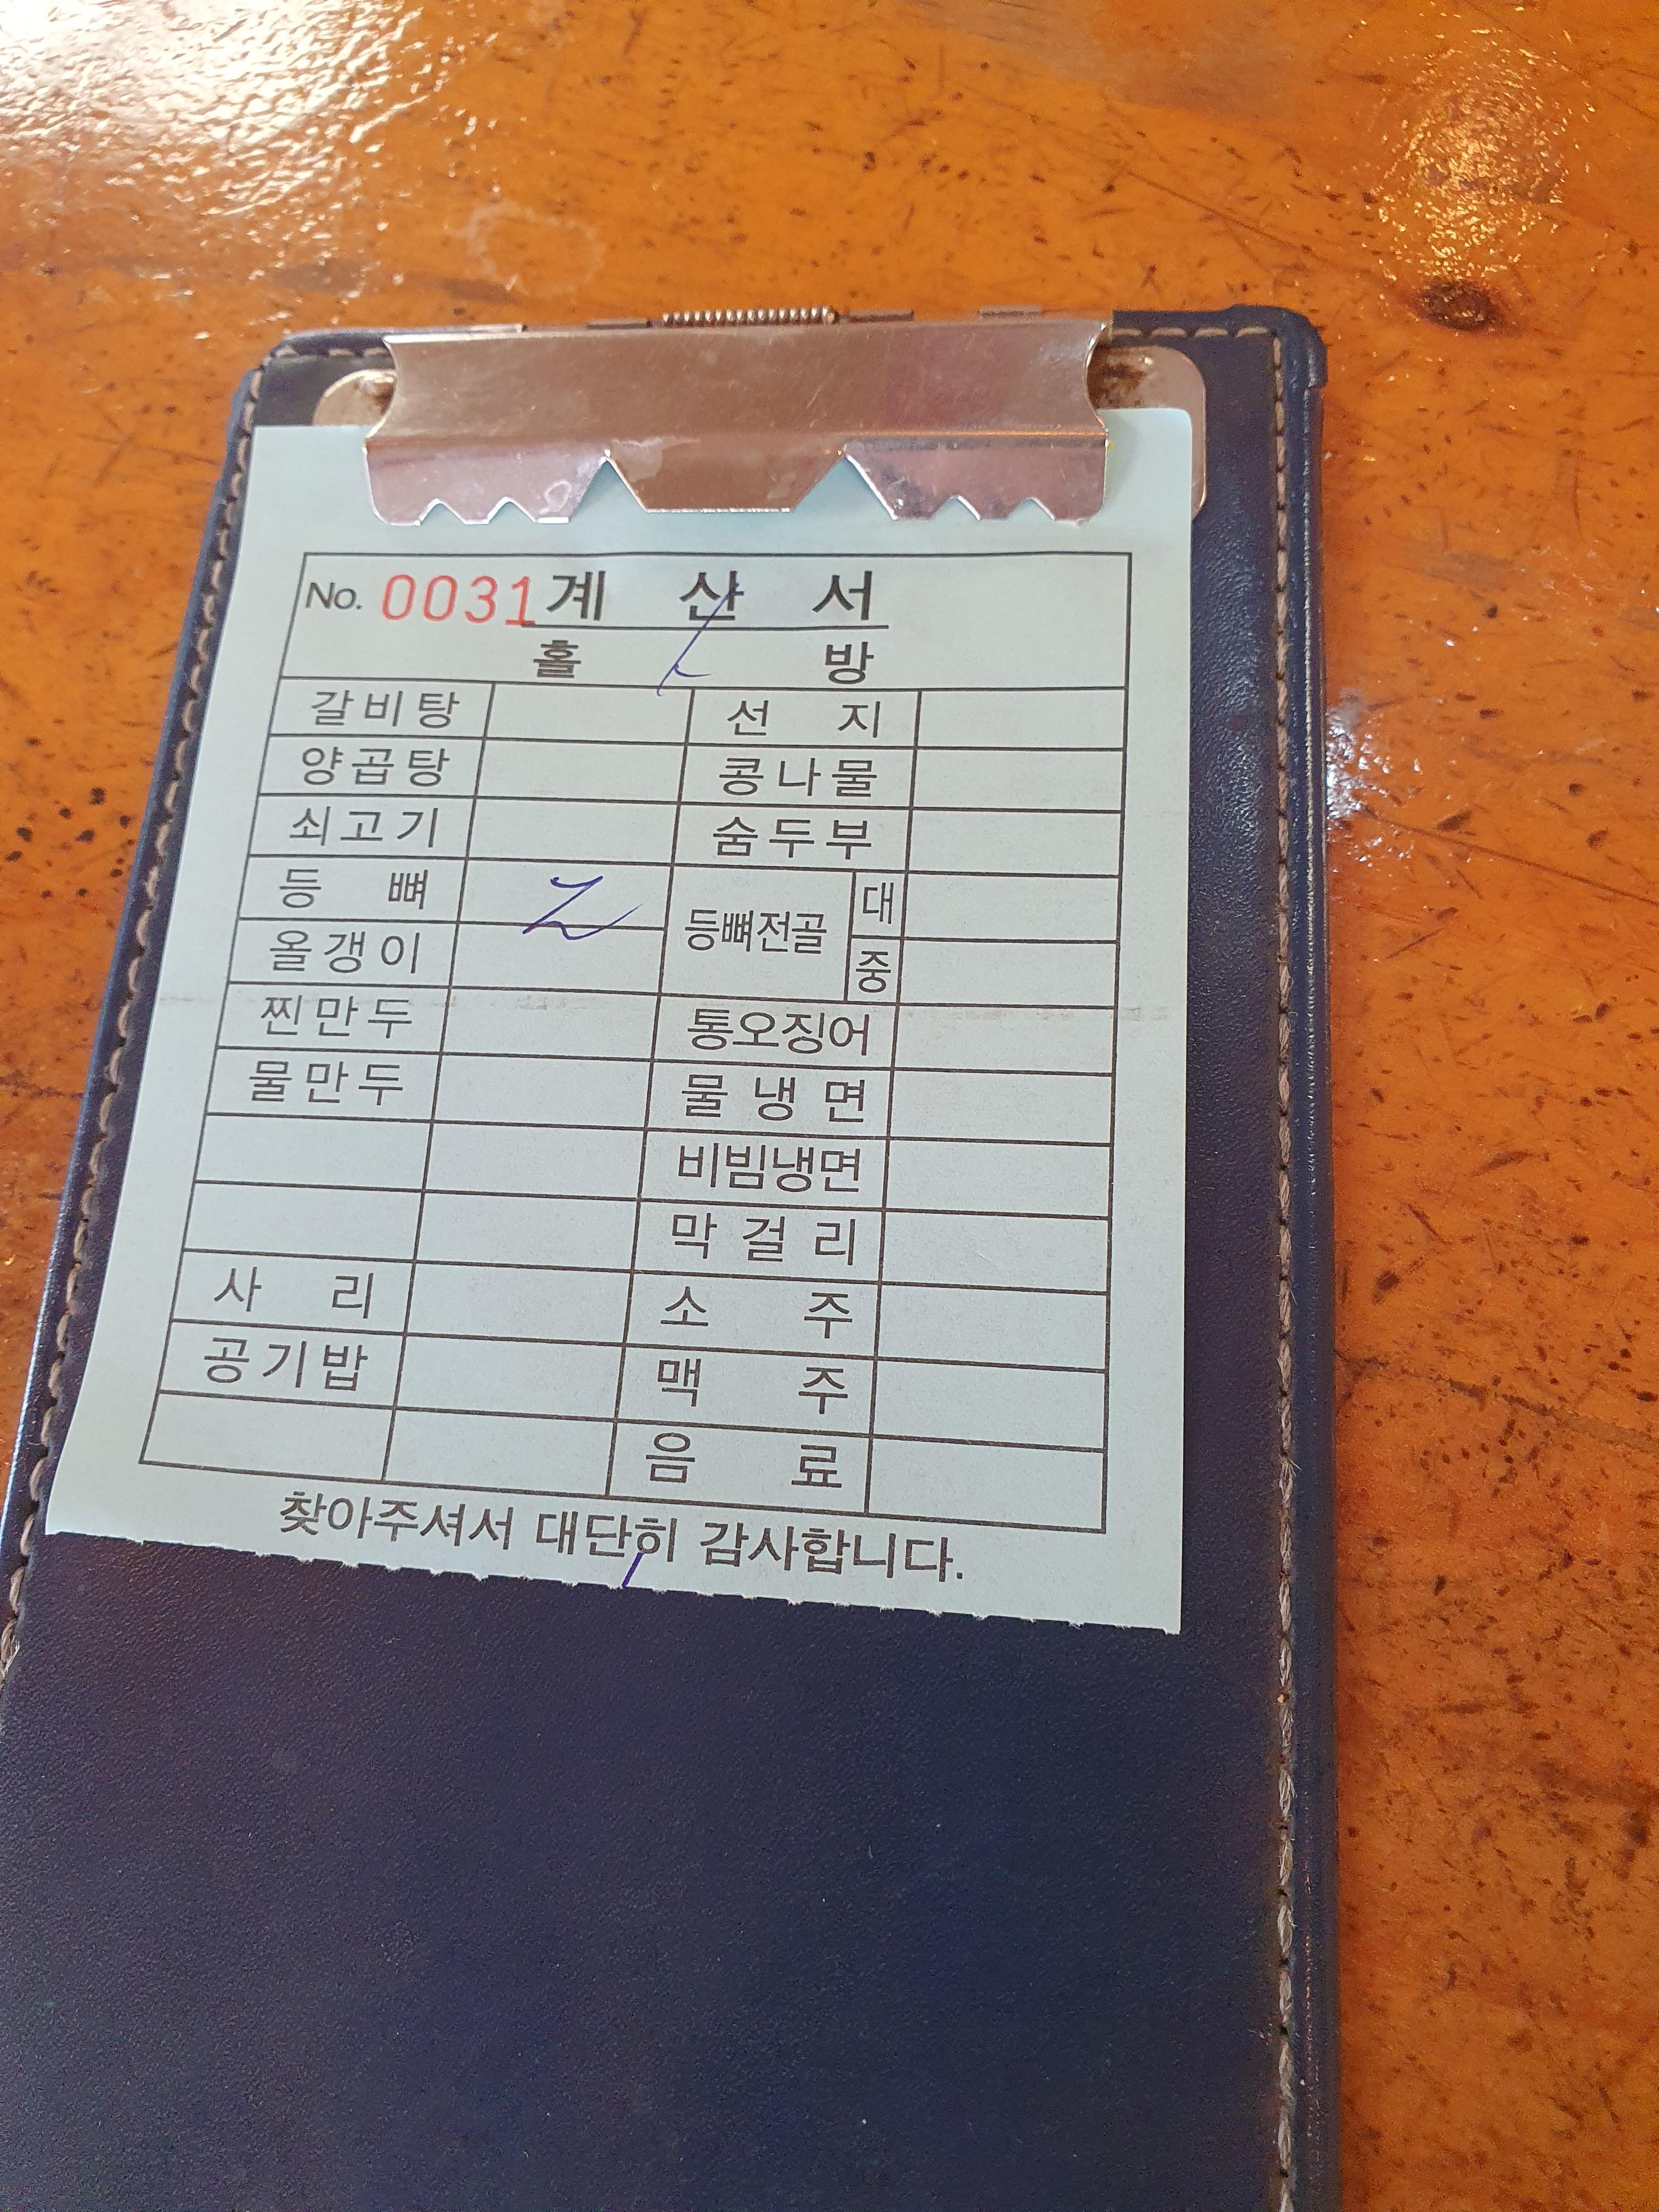 No. 0031 계 산 서
홀 방
갈비탕 선 지
양곱탕 콩나물
쇠고기 숨두부
등 뼈 2 등뼈전골 대
올갱이 중
찐만두 통오징어
물만두 물 냉 면
비빔냉면
막 걸 리
사 리 소 주
공기밥 맥 주
음 료
찾아주셔서 대단히 감사합니다.